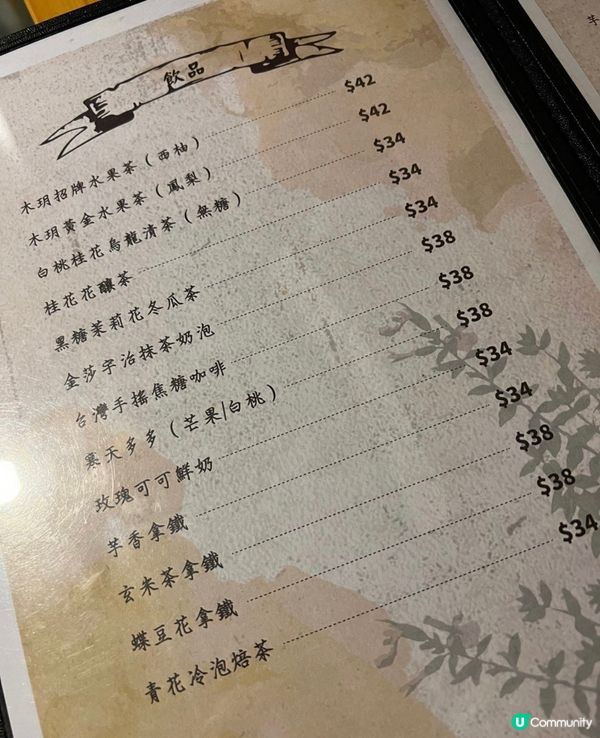 飲品
木玥招牌水果茶（西柚） $42
木玥黃金水果茶（鳳梨） $42
白桃桂花烏龍清茶（無糖） $34
桂花花釀茶 $34
黑糖茉莉花冬瓜茶 $34
金莎宇治抹茶奶泡 $38
台灣手搖焦糖咖啡 $38
寒天多多（芒果|白桃） $38
玫瑰可可鮮奶 $34
芋香拿鐵 $34
玄米茶拿鐵 $38
蝶豆花拿鐵 $38
青花冷泡焙茶 $34
U Community